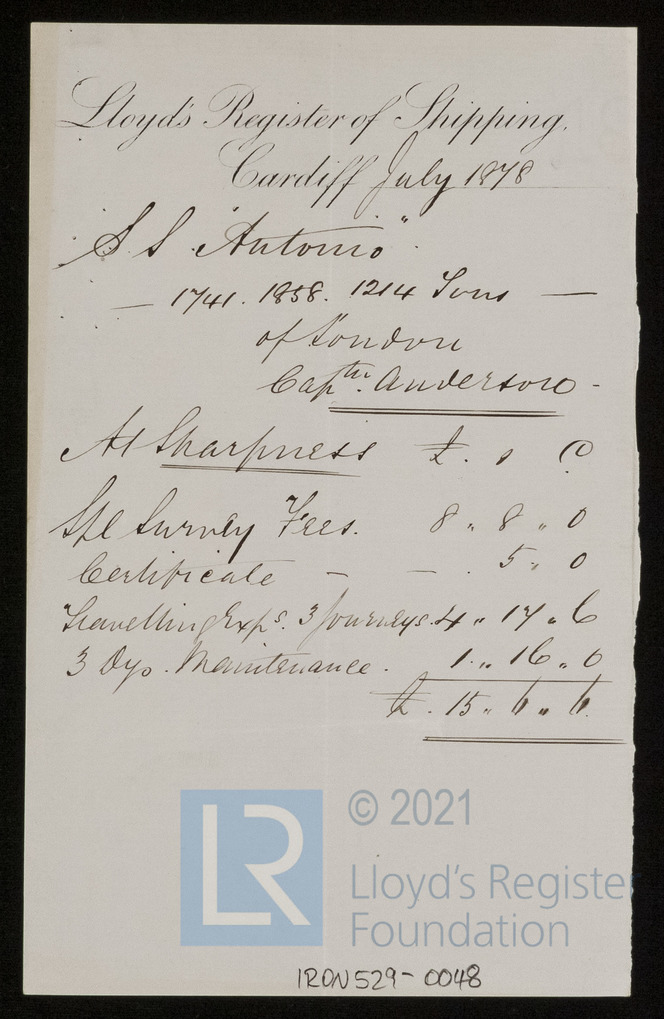 Lloyd's Register of Shipping,
Cardiff July 1878
S S "Antonio"
— 1741. 1858. 1214 Tons —
of London
Captn. Anderson -
At Sharpness £ . s D
Spl Survey Fees. 8 " 8 " 0
Certificate — — . 5 " 0
Travelling Exps. 3 Journeys. 4 " 17 " 6
3 Dys. Maintenance. 1 " 16 " 0
£ . 15 " 6 " 6.
LR
© 2021
Lloyd's Register
Foundation
IRON529-0048